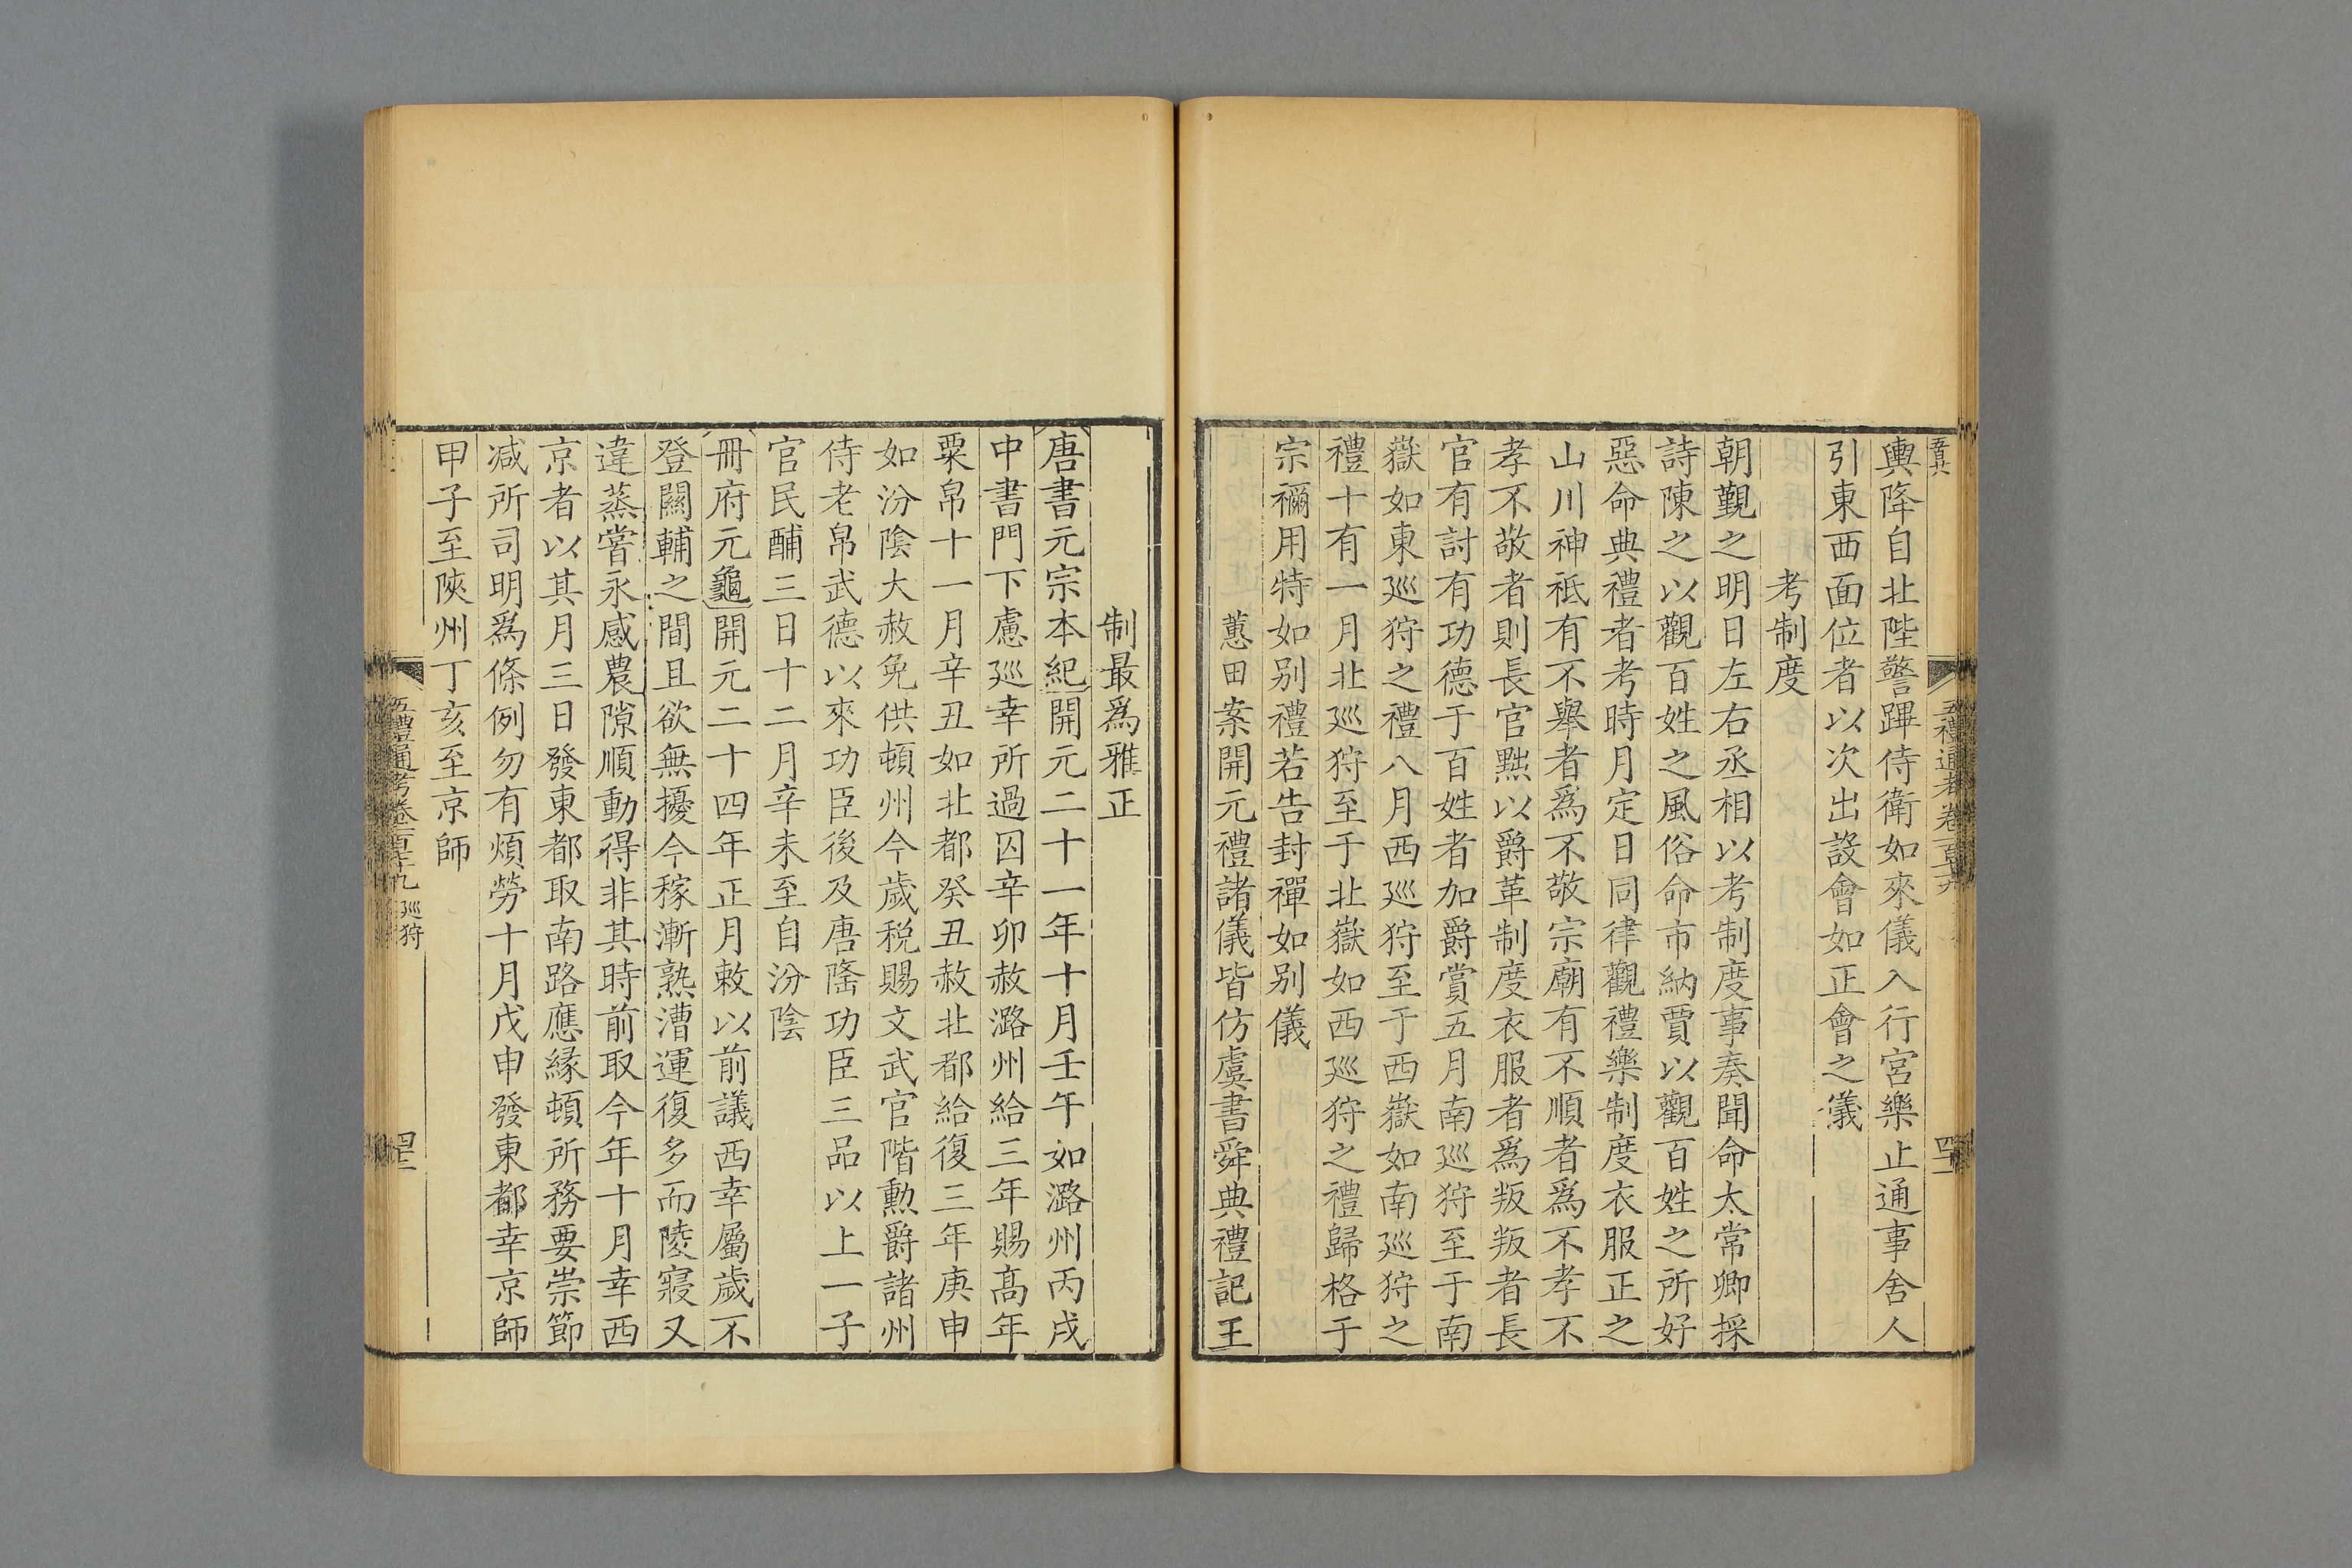 輿降自北陛警蹕侍衛如來儀入行宮樂止通事舍人
引東西面位者以次出設會如正會之儀
考制度
朝覲之明日左右丞相以考制度事奏聞命太常卿採
詩陳之以觀百姓之風俗命市納賈以觀百姓之所好
惡命典禮者考時月定日同律觀禮樂制度衣服正之
山川神祗有不舉者爲不敬宗廟有不順者爲不孝不
孝不敬者則長官黜以爵革制度衣服者爲叛叛者長
官有討有功德于百姓者加爵賞五月南廵狩至于南
嶽如東廵狩之禮八月西廵狩至于西嶽如南廵狩之
禮十有一月北廵狩至于北嶽如西廵狩之禮歸格于
宗禰用特如别禮若告封禪如别儀
蕙田案開元禮諸儀皆仿虞書舜典禮記王
制最爲雅正
唐書元宗本紀開元二十一年十月壬午如潞州丙戌
中書門下慮廵幸所過囚辛卯赦潞州給三年賜高年
粟帛十一月辛丑如北都癸丑赦北都給復三年庚申
如汾陰大赦免供頓州今歲税賜文武官階勲爵諸州
侍老帛武德以來功臣後及唐隆功臣三品以上一子
官民酺三日十二月辛未至自汾陰
冊府元龜開元二十四年正月敕以前議西幸屬歲不
登關輔之間且欲無擾今稼漸熟漕運復多而陵寢又
違蒸嘗永感農隙順動得非其時前取今年十月幸西
京者以其月三日發東都取南路應緣頓所務要崇節
減所司明爲條例勿有煩勞十月戊申發東都幸京師
甲子至陝州丁亥至京師
五禮通考卷一百七十九 廵狩